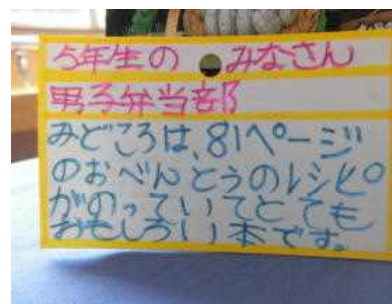 5年生の みなさん
男子弁当部
みどころは、81ページ
のおべんとうのレシピ
がのっていてとても
おもしろい本です。